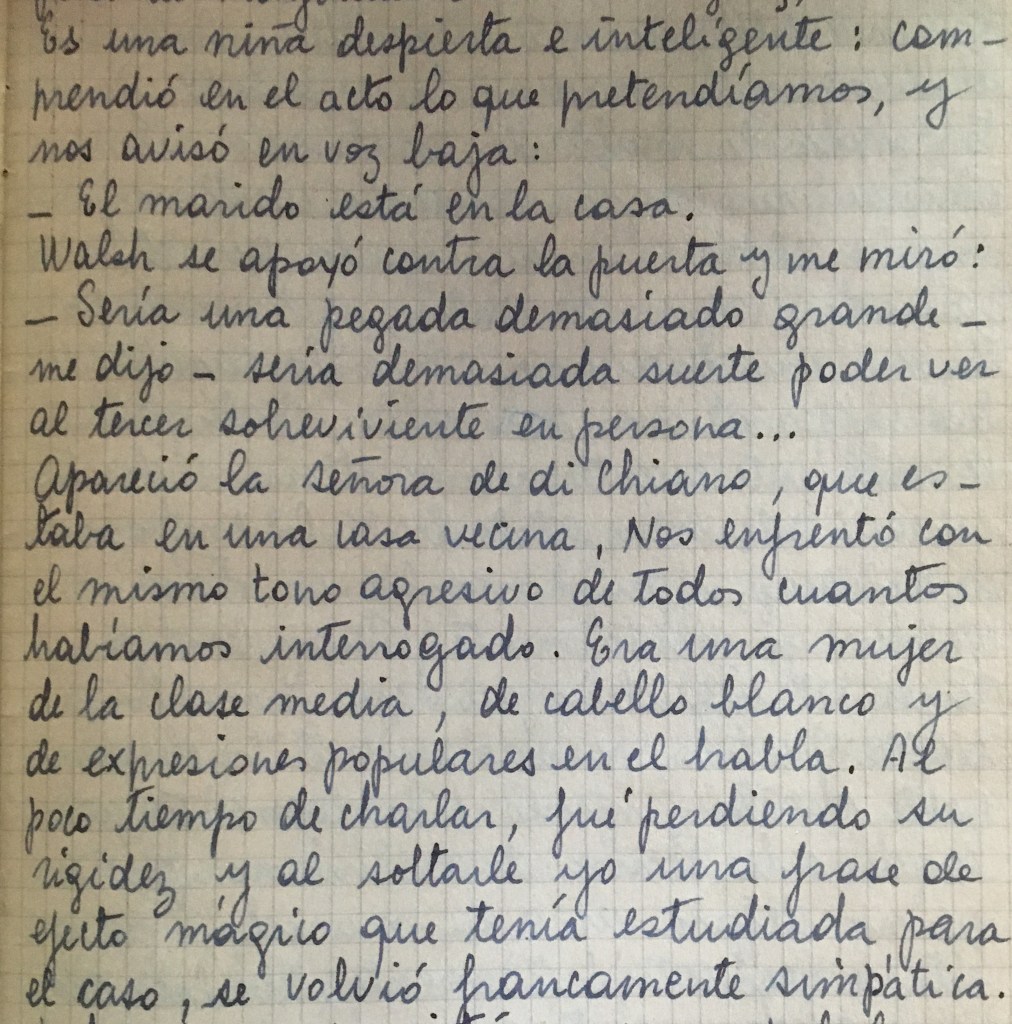 Es una niña despierta e inteligente: com-
prendió en el acto lo que pretendíamos, y
nos avisó en voz baja:
- El marido está en la casa.
Walsh se apoyó contra la puerta y me miró:
- Sería una pegada demasiado grande -
me dijo - sería demasiada suerte poder ver
al tercer sobreviviente en persona...
Apareció la señora de di Chiano, que es-
taba en una casa vecina, Nos enfrentó con
el mismo tono agresivo de todos cuantos
habíamos interrogado. Era una mujer
de la clase media, de cabello blanco y
de expresiones populares en el habla. Al
poco tiempo de charlar, fué perdiendo su
rigidez y al soltarle yo una frase de
efecto mágico que tenía estudiada para
el caso, se volvió francamente simpática.